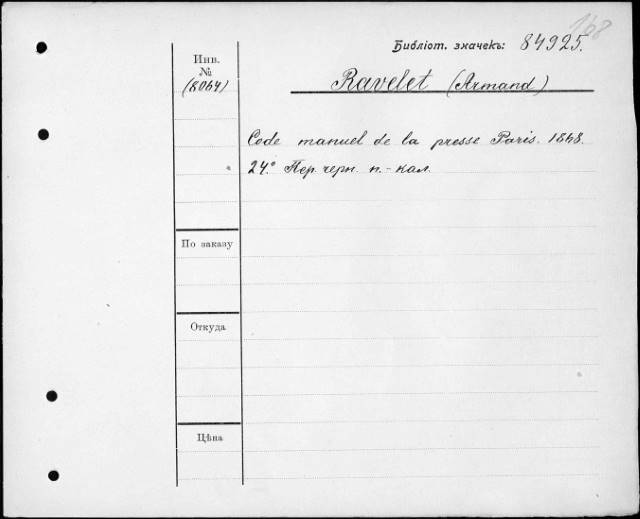 168
Библіот. значекъ: 84925.
Инв.
№
(8064)
Ravelet (Armand)
Code manuel de la presse Paris. 1868.
24° Пер. черн. п.-кал.
По заказу
Откуда
Цѣна